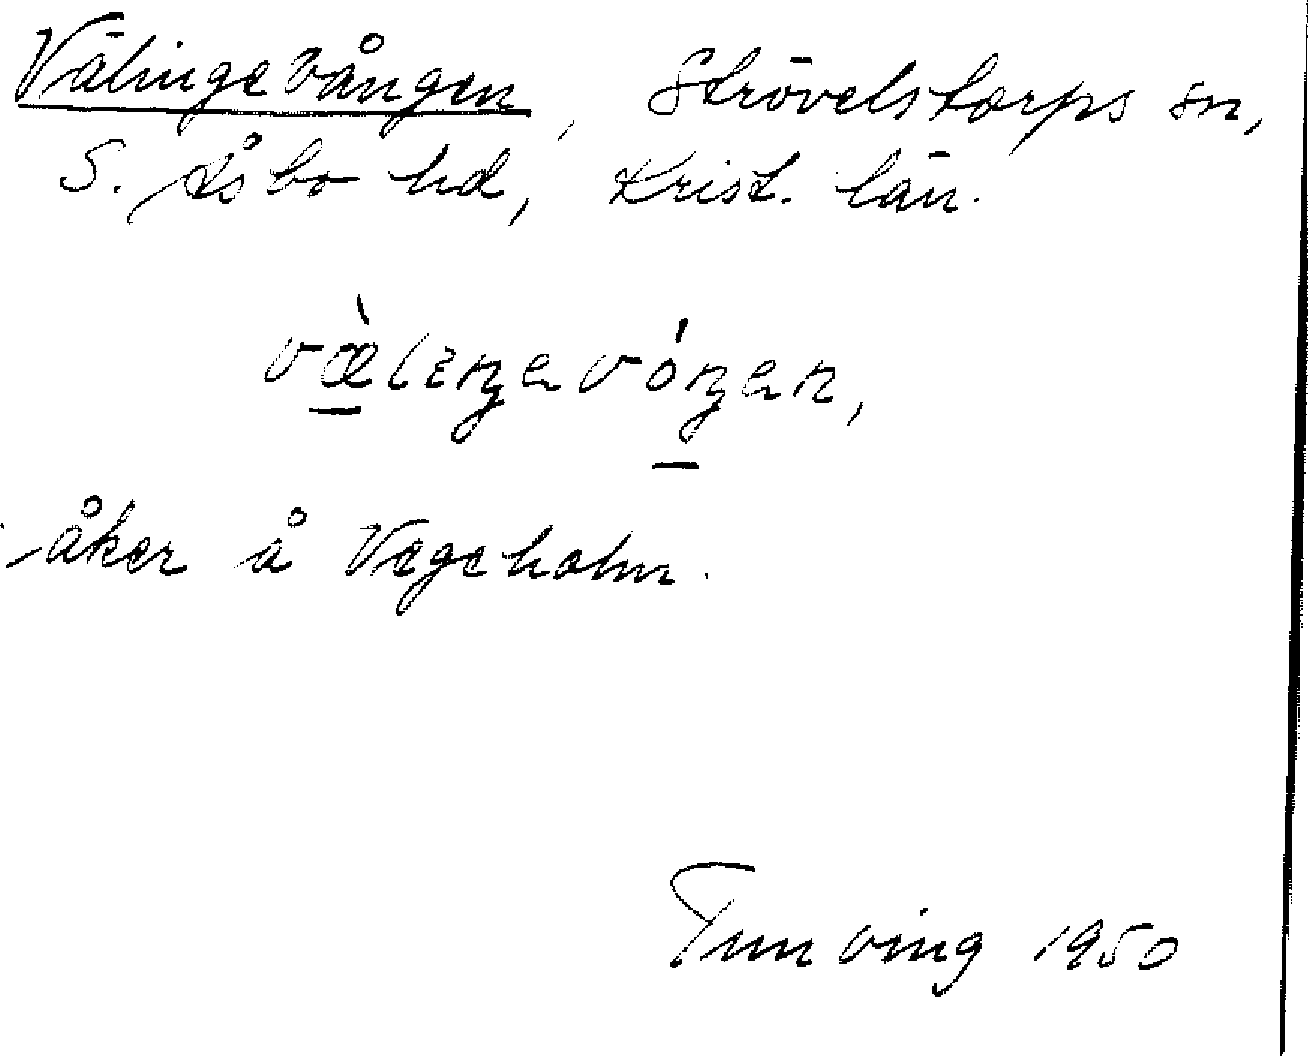 Välingevången, Strövelstorps sn,
S. Åsbo hd, Krist. län.
væ̀lɪŋəvóŋən,
åker å Vegeholm.
Tunving 1950